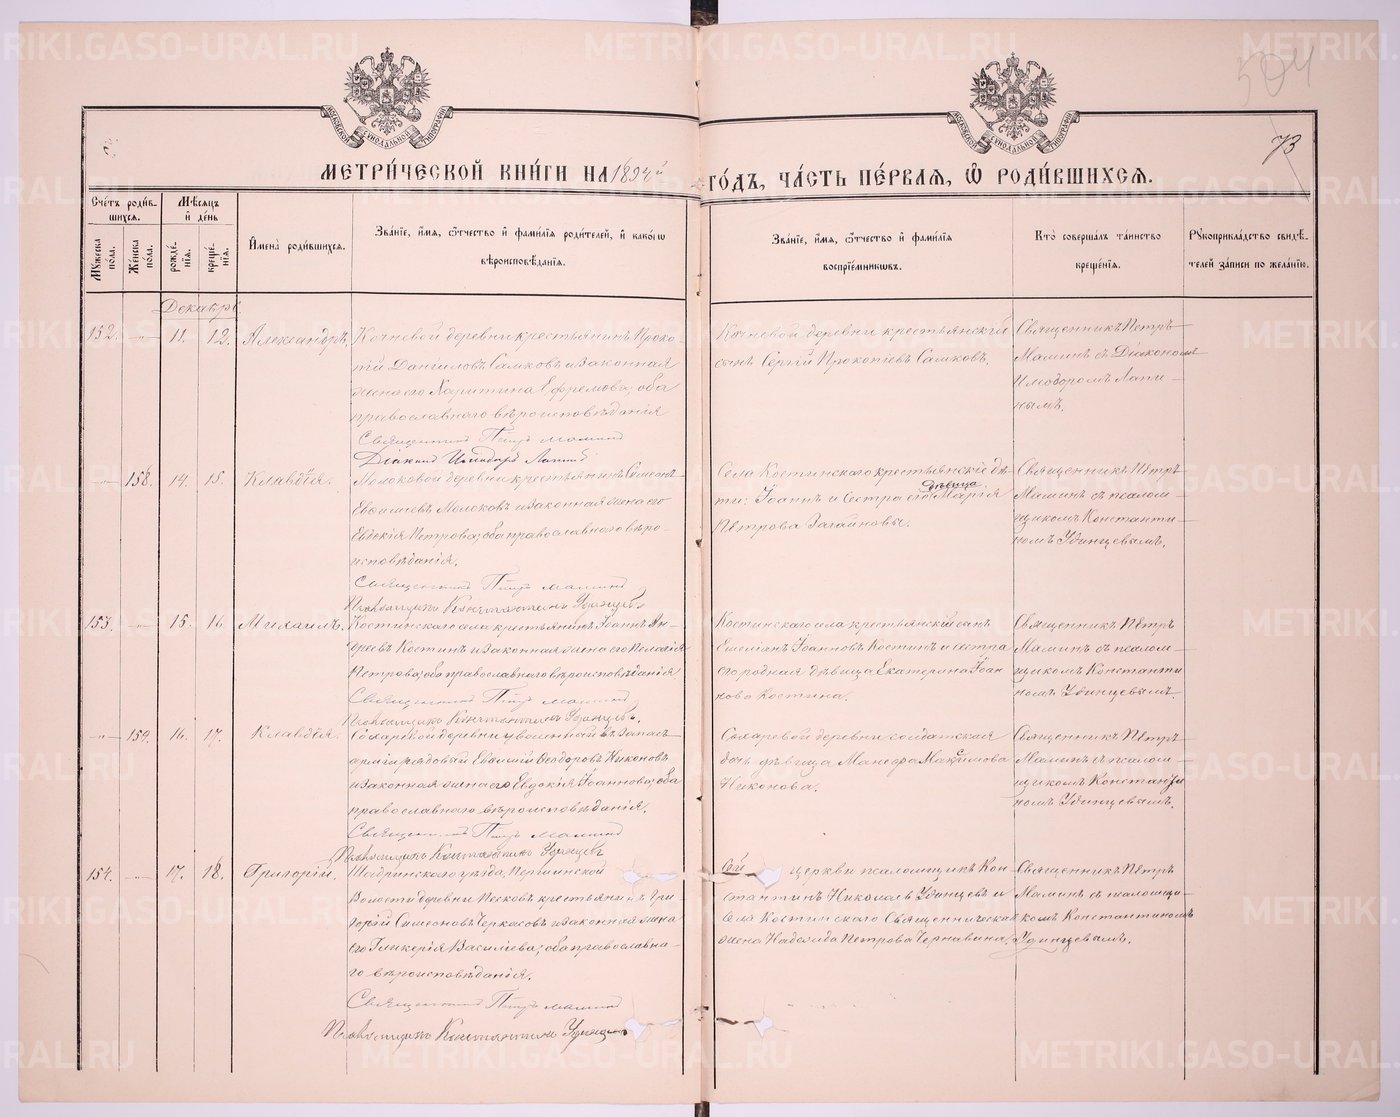 504
73
МЕТРИ́ЧЕСКОЙ КНИ́ГИ НА 1894й ГО́ДЪ, ЧА́СТЬ ПЕ́РВАЯ, Ѽ РОДИ́ВШИХСЯ.
Сче́тъ роди́в-
шихся.
Мѣ́сяцъ
и҆ де́нь
Мꙋ́жеска по́ла.
Же́нска по́ла.
рожде́-
нїя.
креще́-
нїя.
И҆мена̀ роди́вшихся.
Зва́нїе, и҆́мя, ѻ҆́тчество и҆ фами́лїя роди́телей, и҆ како́гѡ
вѣроисповѣ́данїя.
Зва́нїе, и҆́мя, ѻ҆́тчество и҆ фами́лїя
воспрїе́мникѡвъ.
Кто̀ соверша́лъ та́инство
креще́нїя.
Рꙋкоприкла́дство свидѣ́-
телей за́писи по жела́нїю.
Декабрь.
152. — „ — 11. 12. Александръ.
Кочневой деревни крестьянинъ Проко-
пій Даніиловъ Самковъ и законная
жена его Харитина Ефремова; оба
православнаго вѣроисповѣданія
Священникъ Петръ Маминъ
Діаконъ Илиодоръ Лапинъ
Кочневой деревни крестьянскій
сынъ Сергій Прокопіевъ Самковъ.
Священникъ Петръ
Маминъ съ Діакономъ
Илиодоромъ Лапи-
нымъ.
— „ — 158. 14. 15. Клавдія.
Молоковой деревни крестьянинъ Симеонъ
Евѳиміевъ Молоковъ и законная жена его
Евдокія Петрова; оба православнаго вѣро-
исповѣданія.
Священникъ Петръ Маминъ
Псаломщикъ Константинъ Удинцевъ
Села Костинскаго крестьянскіе дѣ-
ти: Іоаннъ и сестра его дѣвица Марія
Петрова Загайновы.
Священникъ Петръ
Маминъ съ псалом-
щикомъ Константи-
номъ Удинцевымъ.
153. — „ — 15. 16. Михаилъ.
Костинскаго села крестьянинъ Іоаннъ Ан-
дреевъ Костинъ и законная жена его Пелагія
Петрова; оба православнаго вѣроисповѣданія
Священникъ Петръ Маминъ
Псаломщикъ Константинъ Удинцевъ.
Костинскаго села крестьянскій сынъ
Емеліанъ Іоанновъ Костинъ и сестра
его родная дѣвица Екатерина Іоан-
нова Костина.
Священникъ Петръ
Маминъ съ псалом-
щикомъ Константи-
номъ Удинцевымъ
— „ — 159. 16. 17. Клавдія.
Сохаревой деревни уволенный въ запасъ
арміи рядовый Евѳимій Ѳеодоровъ Никоновъ
и законная жена его Евдокія Іоаннова; оба
православнаго вѣроисповѣданія.
Священникъ Петръ Маминъ
Псаломщикъ Константинъ Удинцевъ
Сохаревой деревни солдатская
дочь дѣвица Манефа Максимова
Никонова.
Священникъ Петръ
Маминъ съ псалом-
щикомъ Константи-
номъ Удинцевымъ.
154. — „ — 17. 18. Григорій.
Шадринскаго уѣзда, Першинской
Волости деревни Песковъ крестьянинъ Гри-
горій Симеоновъ Черкасовъ и законная жена
его Гликерія Василіева; оба православна-
го вѣроисповѣданія.
Священникъ Петръ Маминъ
Псаломщикъ Константинъ Удинцевъ
Сей церкви псаломщикъ Кон-
стантинъ Николаевъ Удинцевъ и
села Костинскаго Священническая
жена Надежда Петрова Чернавина.
Священникъ Петръ
Маминъ съ псаломщи-
комъ Константиномъ
Удинцевымъ.
METRIKI.GASO-URAL.RU